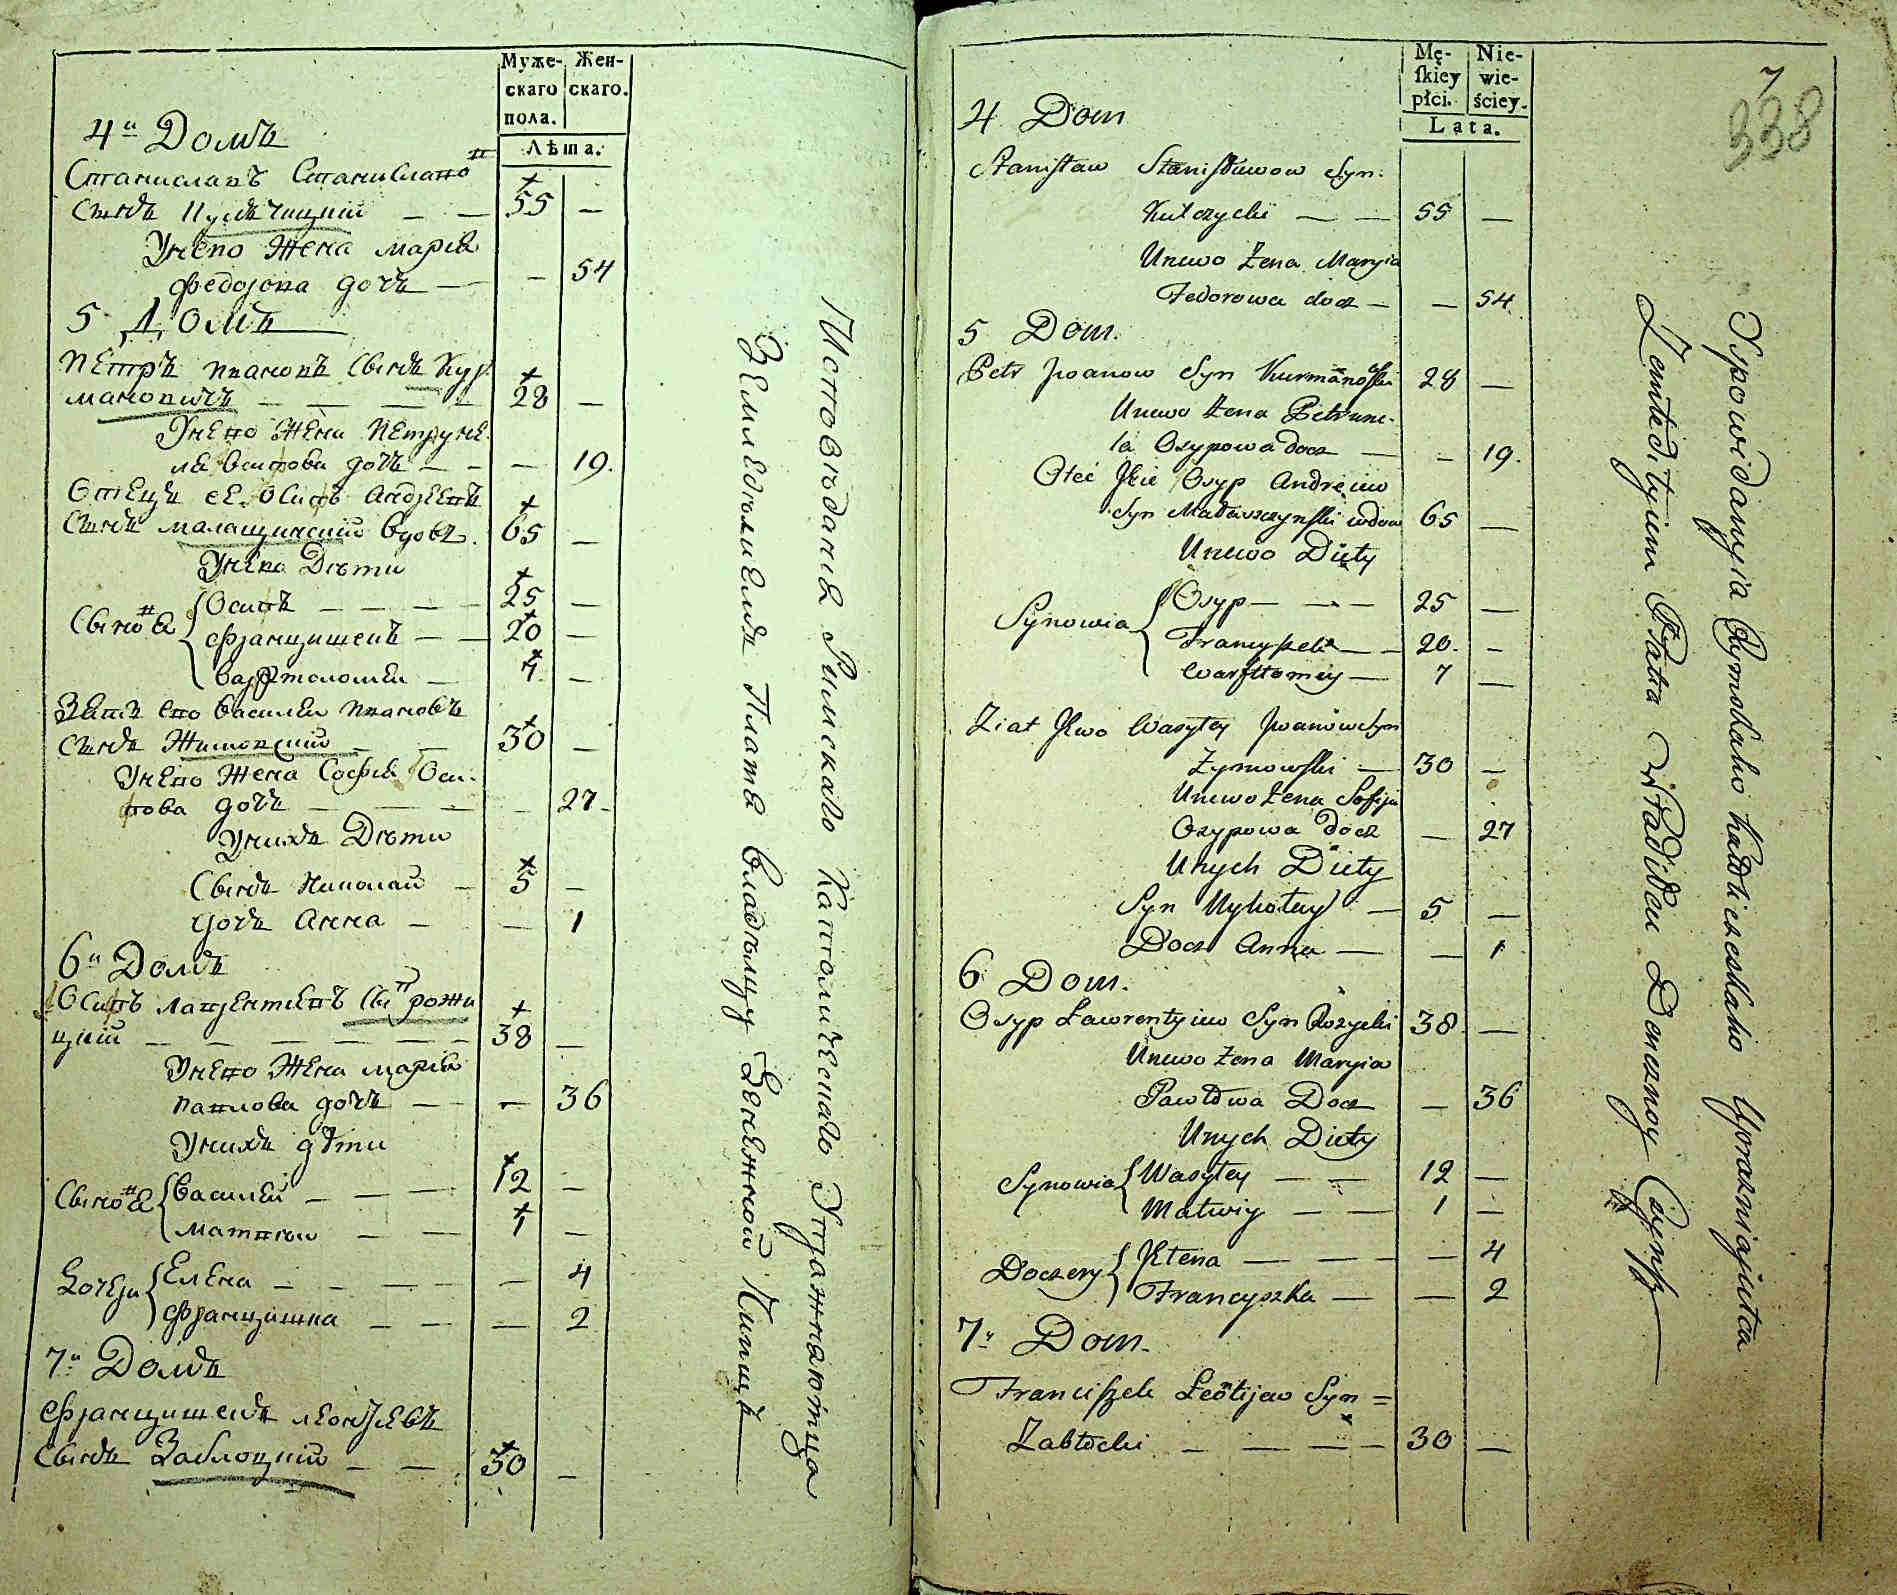 Муже-
скаго
пола.
Жен-
скаго.
Лѣта.
4й Домъ
Станиславъ Станиславовъ
Сынъ Кульчицкий — — 55 —
Унево Жена Мария
Федорова дочь — — 54
5 Домъ
Петръ Ивановъ Сынъ Кур
мановичъ — — — — 28 —
Унево Жена Петруне
ля Осипова дочь — — — 19.
Отецъ ее Осипъ Андреевъ
Сынъ Малащинский вдовъ. 65 —
Унево Дѣти
Сыновья
Осипъ — — — — 25 —
Францишекъ — — 20 —
Варфтоломей — 7 —
Зять ево Василей Ивановъ
Сынъ Жимовский — — 30 —
Унево Жена Софья Оси-
пова дочь — — — — 27 —
Унихъ Дѣти
Сынъ Николай — 5 —
Дочь Анна — — 1
6й Домъ
Осипъ Лаврентьевъ Сынъ Рожи
цкий — — — — — — 38 —
Унево Жена Мария
Павлова дочь — — — 36
Унихъ дѣти
Сыновья
Василей — — — 12 —
Матвѣй — — 1 —
Дочери
Елена — — — — — 4
Францишка — — — 2
7й Домъ
Францишекъ Леонтьевъ
Сынъ Заблоцкий — — 30 —
Исповѣдания Римскаго Католическаго Упражняютца
Земледѣлиемъ Платя владѣлцу Денежной Чиншъ
Mę-
ſkiey
płci.
Nie-
wie-
ściey.
Lata.
7
338
4 Dom
Stanisław Stanisławow Syn.
Kulczycki — — 55 —
Unewo Żena Maryia
Fedorowa docz — — 54
5 Dom.
Petr Iwanow Syn Kurmanowski 28 —
Unewo Żena Petrune-
la Osypowa docz — — 19.
Oteć Jeie Osyp Andreiew
Syn Małaszczynski wdow 65 —
Unewo Diety
Synowia
Osyp — — — 25 —
Francyszek — — 20. —
Warfłtomiey — 7 —
Ziat Jewo Wasyley Iwanow Syn
Żymowski — 30 —
Unewo Żena Sofija
Osypowa docz — 27
Unych Diety
Syn Mykołay — 5 —
Docz Anna — — 1
6 Dom.
Osyp Ławrentyiew Syn Rożycki 38 —
Unewo Żena Maryia
Pawłowa Docz — 36
Unych Diety
Synowia
Wasyley — — 12 —
Matwiy — — 1 —
Doczery
Jelena — — — — 4
Francyszka — — 2
7й Dom.
Franciszek Leotijew Syn =
Zabłocki — — — — 30 —
Ispowidanyia Rymskaho katoliczeskaho Uprazniajutca
Zemledilyiem Płatia władilcu Deneznoy Czynsz